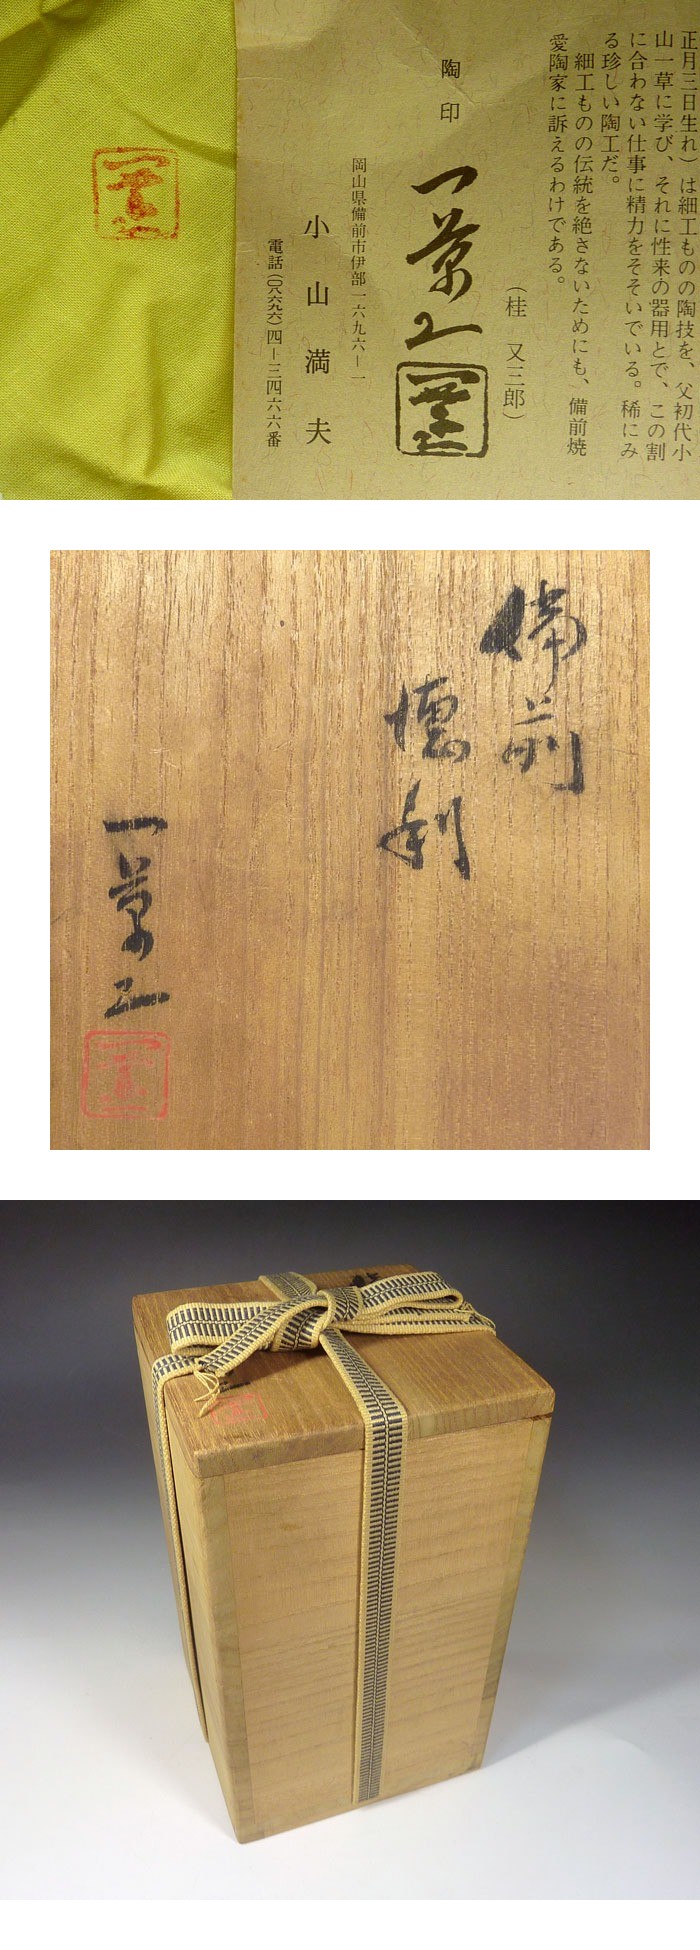 正月三日生れ）は細工ものの陶技を、父初代小
山一草に学び、それに性来の器用とで、この割
に合わない仕事に精力をそそいでいる。稀にみ
る珍しい陶工だ。
細工ものの伝統を絶さないためにも、備前焼
愛陶家に訴えるわけである。
（桂　又三郎）
陶印
一草工
岡山県備前市伊部一六九六ー一
小山満夫
電話（〇八六九六）四ー三四六六番
備前
徳利
一草工